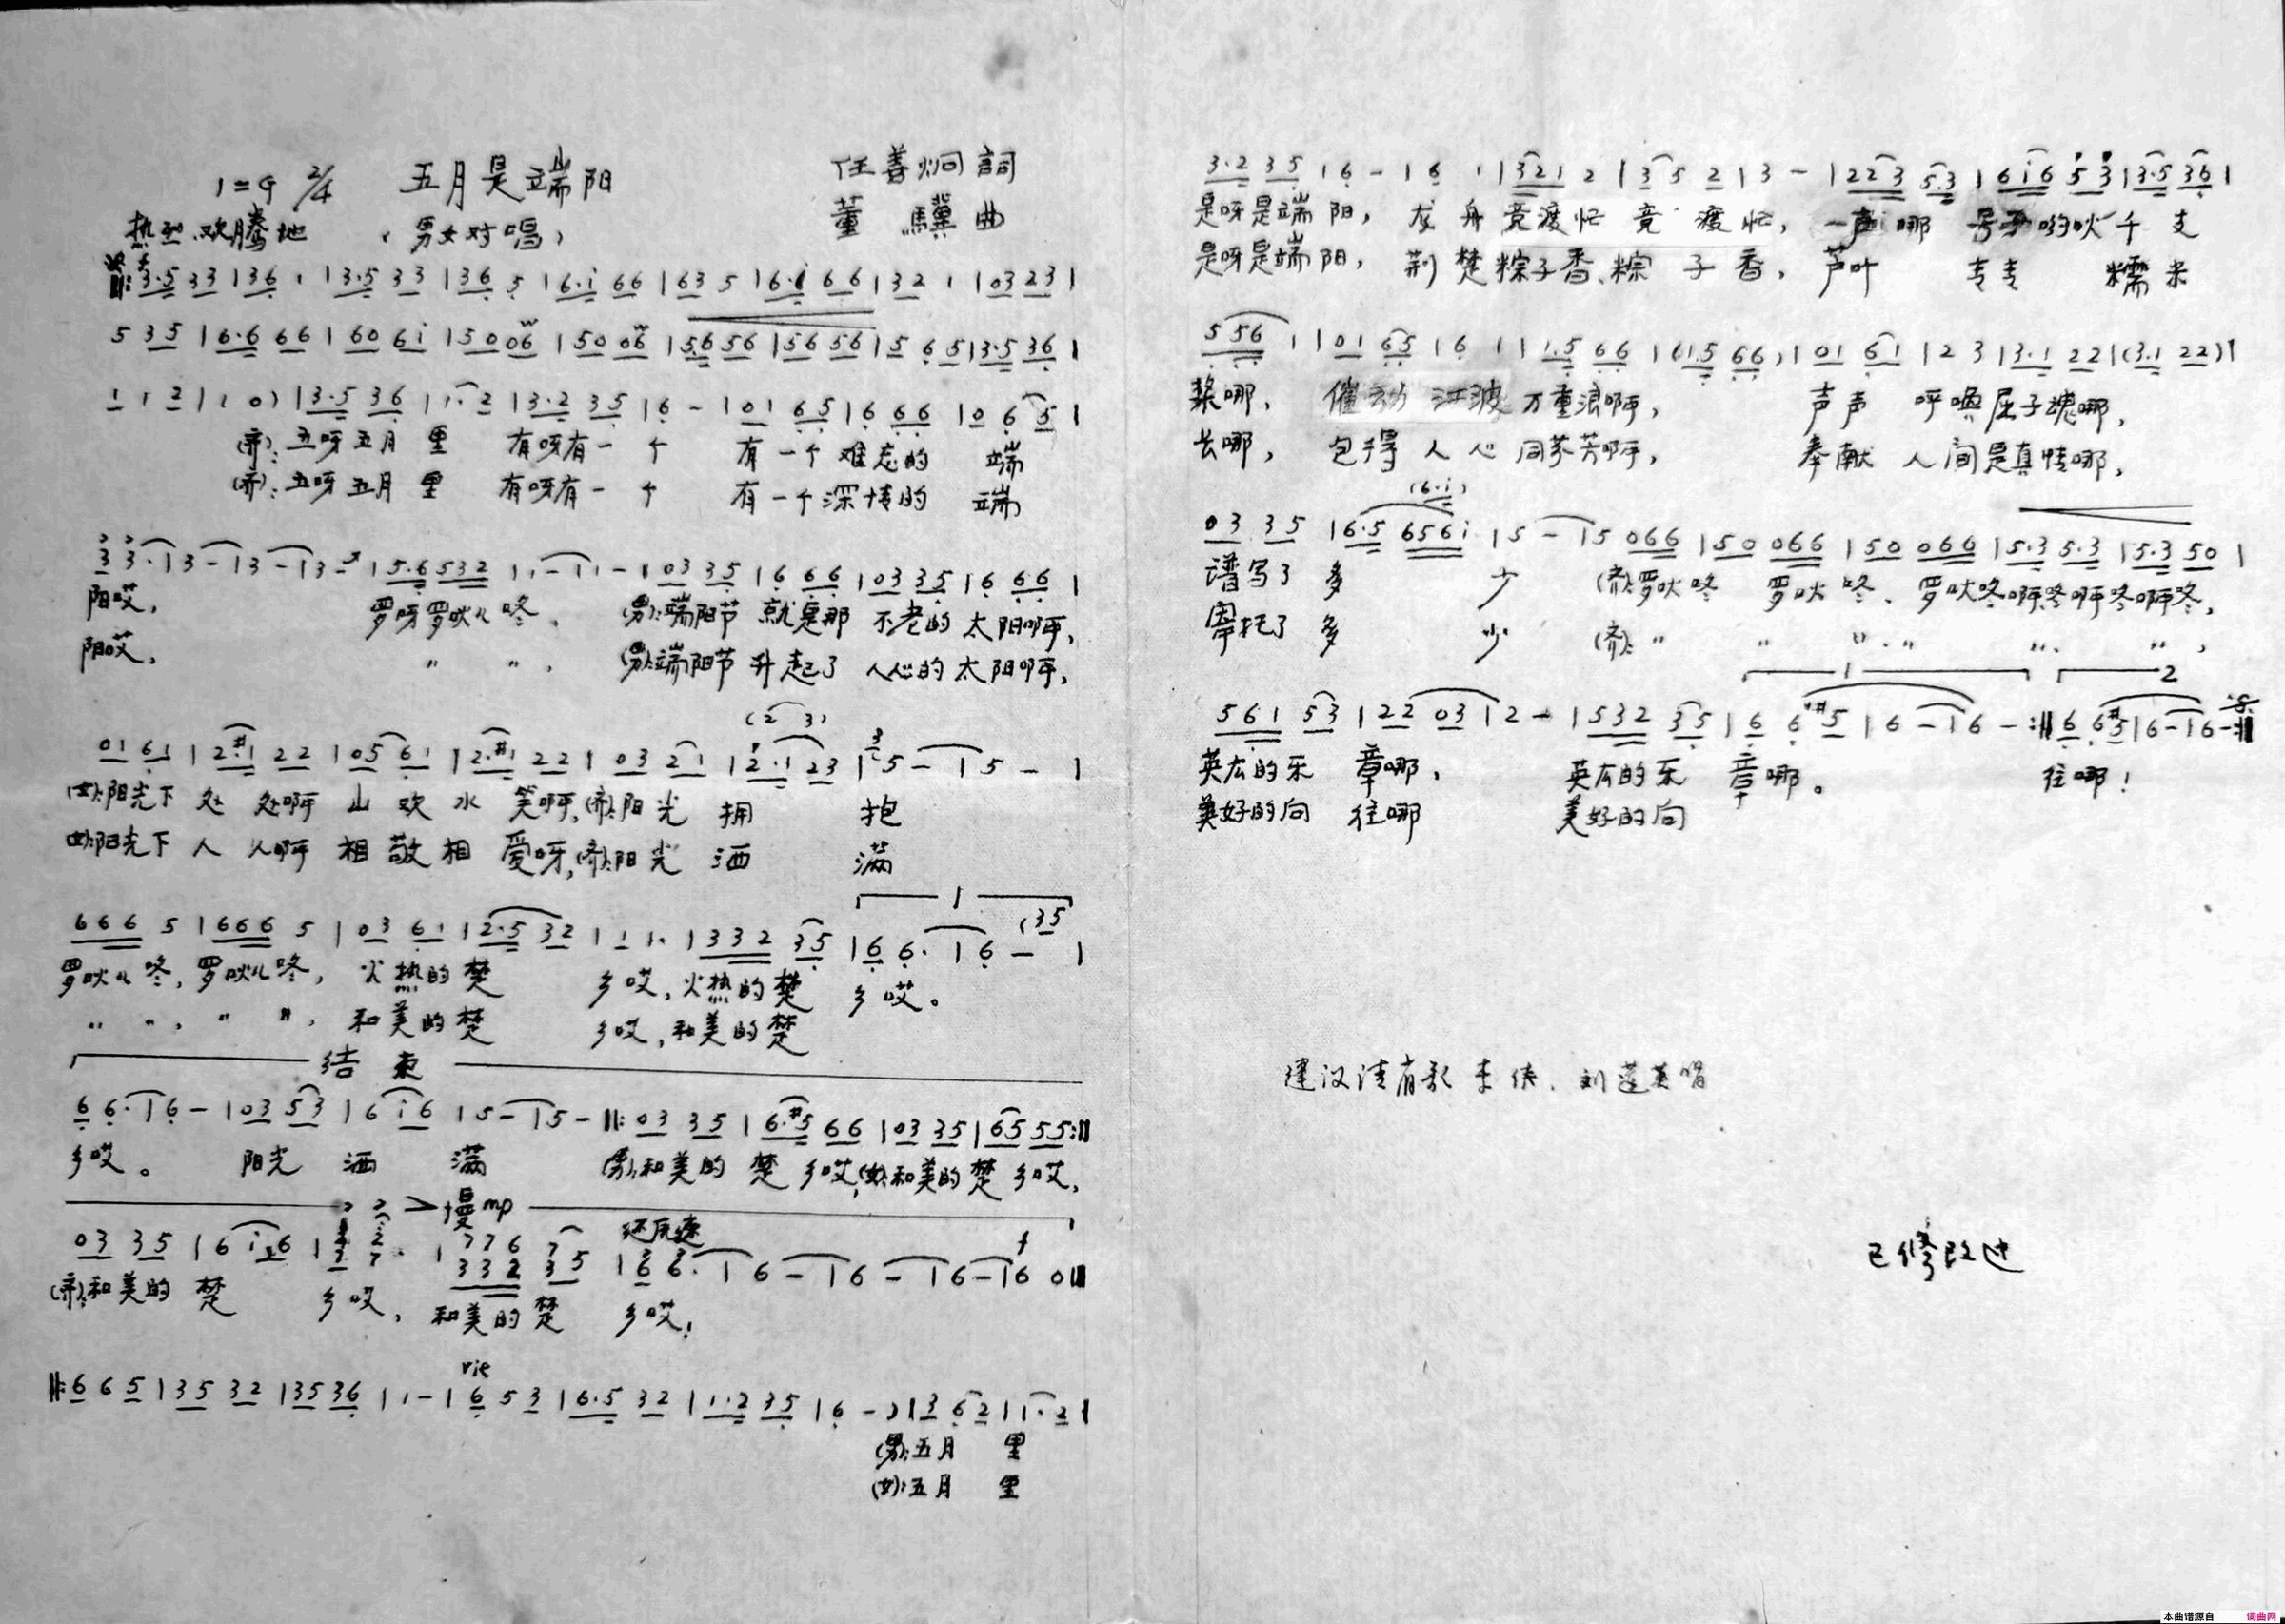 1=G 2/4 五月是端阳 任善炯詞
热烈、欢腾地 (男女对唱) 董 驥 曲
3·5 33 | 36 1 | 3·5 33 | 36 5 | 6·i 66 | 63 5 | 6·i 66 | 32 1 | 03 23 |
5 35 | 6·6 66 | 60 6i | 50 06 | 50 06 | 56 56 | 56 56 | 5 6 5 | 3·5 36 |
1 1 2 | 1 0) | 3·5 36 | 1· 2 | 3·2 35 | 6 - | 01 65 | 6 66 | 0 6 5 |
(齐): 五呀五月 里 有呀有一 个 有一个难忘的 端
(齐): 五呀五月 里 有呀有一 个 有一个深情的 端
3 3· | 3 - | 3 - | 3 - | 5·6 532 | 1 - | 1 - | 03 35 | 6 66 | 03 35 | 6 66 |
阳哎, 罗呀罗吙儿咚, (男):端阳节 就是那 不老的太阳啊,
阳哎, " ", (男):端阳节 升起了 人心的太阳啊,
(2 3)
01 61 | 2·#1 22 | 05 61 | 2·#1 22 | 03 21 | 2·1 23 | 5 - | 5 - |
(女):阳光下 处 处啊 山 欢 水 笑啊,(齐):阳光 拥 抱
(女):阳光下 人 人啊 相 敬 相 爱呀,(齐):阳光 洒 满
1
666 5 | 666 5 | 03 61 | 2·5 32 | 1 1· | 332 35 | 6 6· | 6 - (35 |
罗吙儿咚,罗吙儿咚, 火热的楚 乡哎,火热的楚 乡哎。
" ", " ", 和美的楚 乡哎,和美的楚
结 束
6 6· | 6 - | 03 53 | 6 i 6 | 5 - | 5 - ‖: 03 35 | 6·#5 66 | 03 35 | 65 55 :‖
乡哎。 阳光 洒 满 (男):和美的 楚 乡哎,(女):和美的楚 乡哎,
慢mp
还原速 f
03 35 | 6 i 6 | 776 7
332 35 | 6 6· | 6 - | 6 - | 6 - | 6 0 ‖
(齐):和美的 楚 乡哎, 和美的楚 乡哎!
rit
‖: 6 6 5 | 35 32 | 35 36 | 1 - | 6 5 3 | 6·5 32 | 1·2 35 | 6 -) | 3 62 | 1· 2 |
(男):五月 里
(女):五月 里
3·2 35 | 6 - | 6 1 | 321 2 | 3 5 2 | 3 - | 223 5·3 | 6i6 53 | 3·5 36 |
是呀是端 阳, 龙 舟竞渡忙 竞 渡忙, 一声 哪 号子哟吙千 支
是呀是端 阳, 荆 楚粽子香、粽 子 香, 芦叶 专专 糯 米
556 1 | 01 65 | 6 1 | 1·5 66 | (1·5 66) | 01 61 | 2 3 | 3·1 22 | (3·1 22) |
桨哪, 催动 江波 万重浪啊, 声声 呼唤屈子魂哪,
长哪, 包得 人心 同芬芳啊, 奉献 人间是真情哪,
(6·i)
03 35 | 6·5 656i | 5 - | 5 066 | 50 066 | 50 066 | 5·3 5·3 | 5·3 50 |
谱写了 多 少 (齐):罗吙咚 罗吙咚、罗吙咚啊咚啊咚啊咚,
寄托了 多 少 (齐): " " " " " ",
1 2
561 53 | 22 03 | 2 - | 532 35 | 6 6 #5 | 6 - | 6 - :‖ 6 6#5 | 6 - | 6 - :‖
英広的乐 章哪, 英広的乐 章哪。 往哪!
美好的向 往哪 美好的向
已修改过
本曲谱源自 词曲网